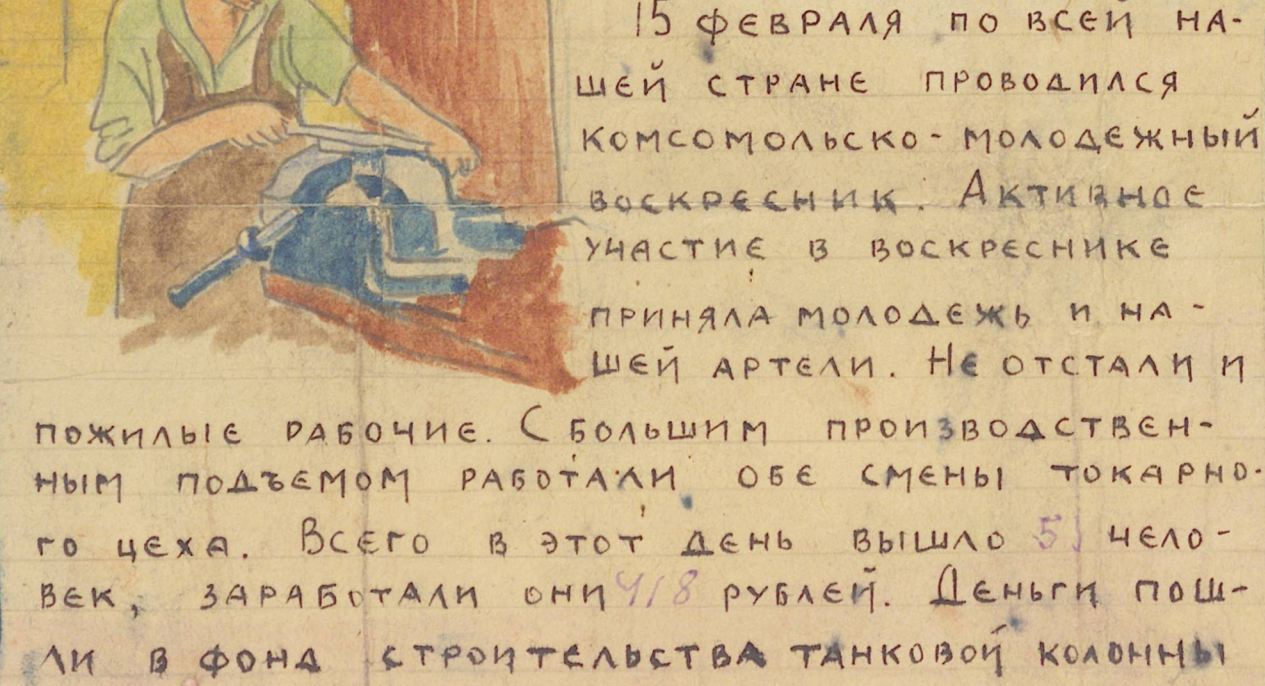 15 февраля по всей на-
шей стране проводился
комсомольско-молодежный
воскресник. Активное
участие в воскреснике
приняла молодежь и на-
шей артели. Не отстали и
пожилые рабочие. С большим производствен-
ным подъемом работали обе смены токарно-
го цеха. Всего в этот день вышло 51 чело-
век, заработали они 418 рублей. Деньги пош-
ли в фонд строительства танковой колонны